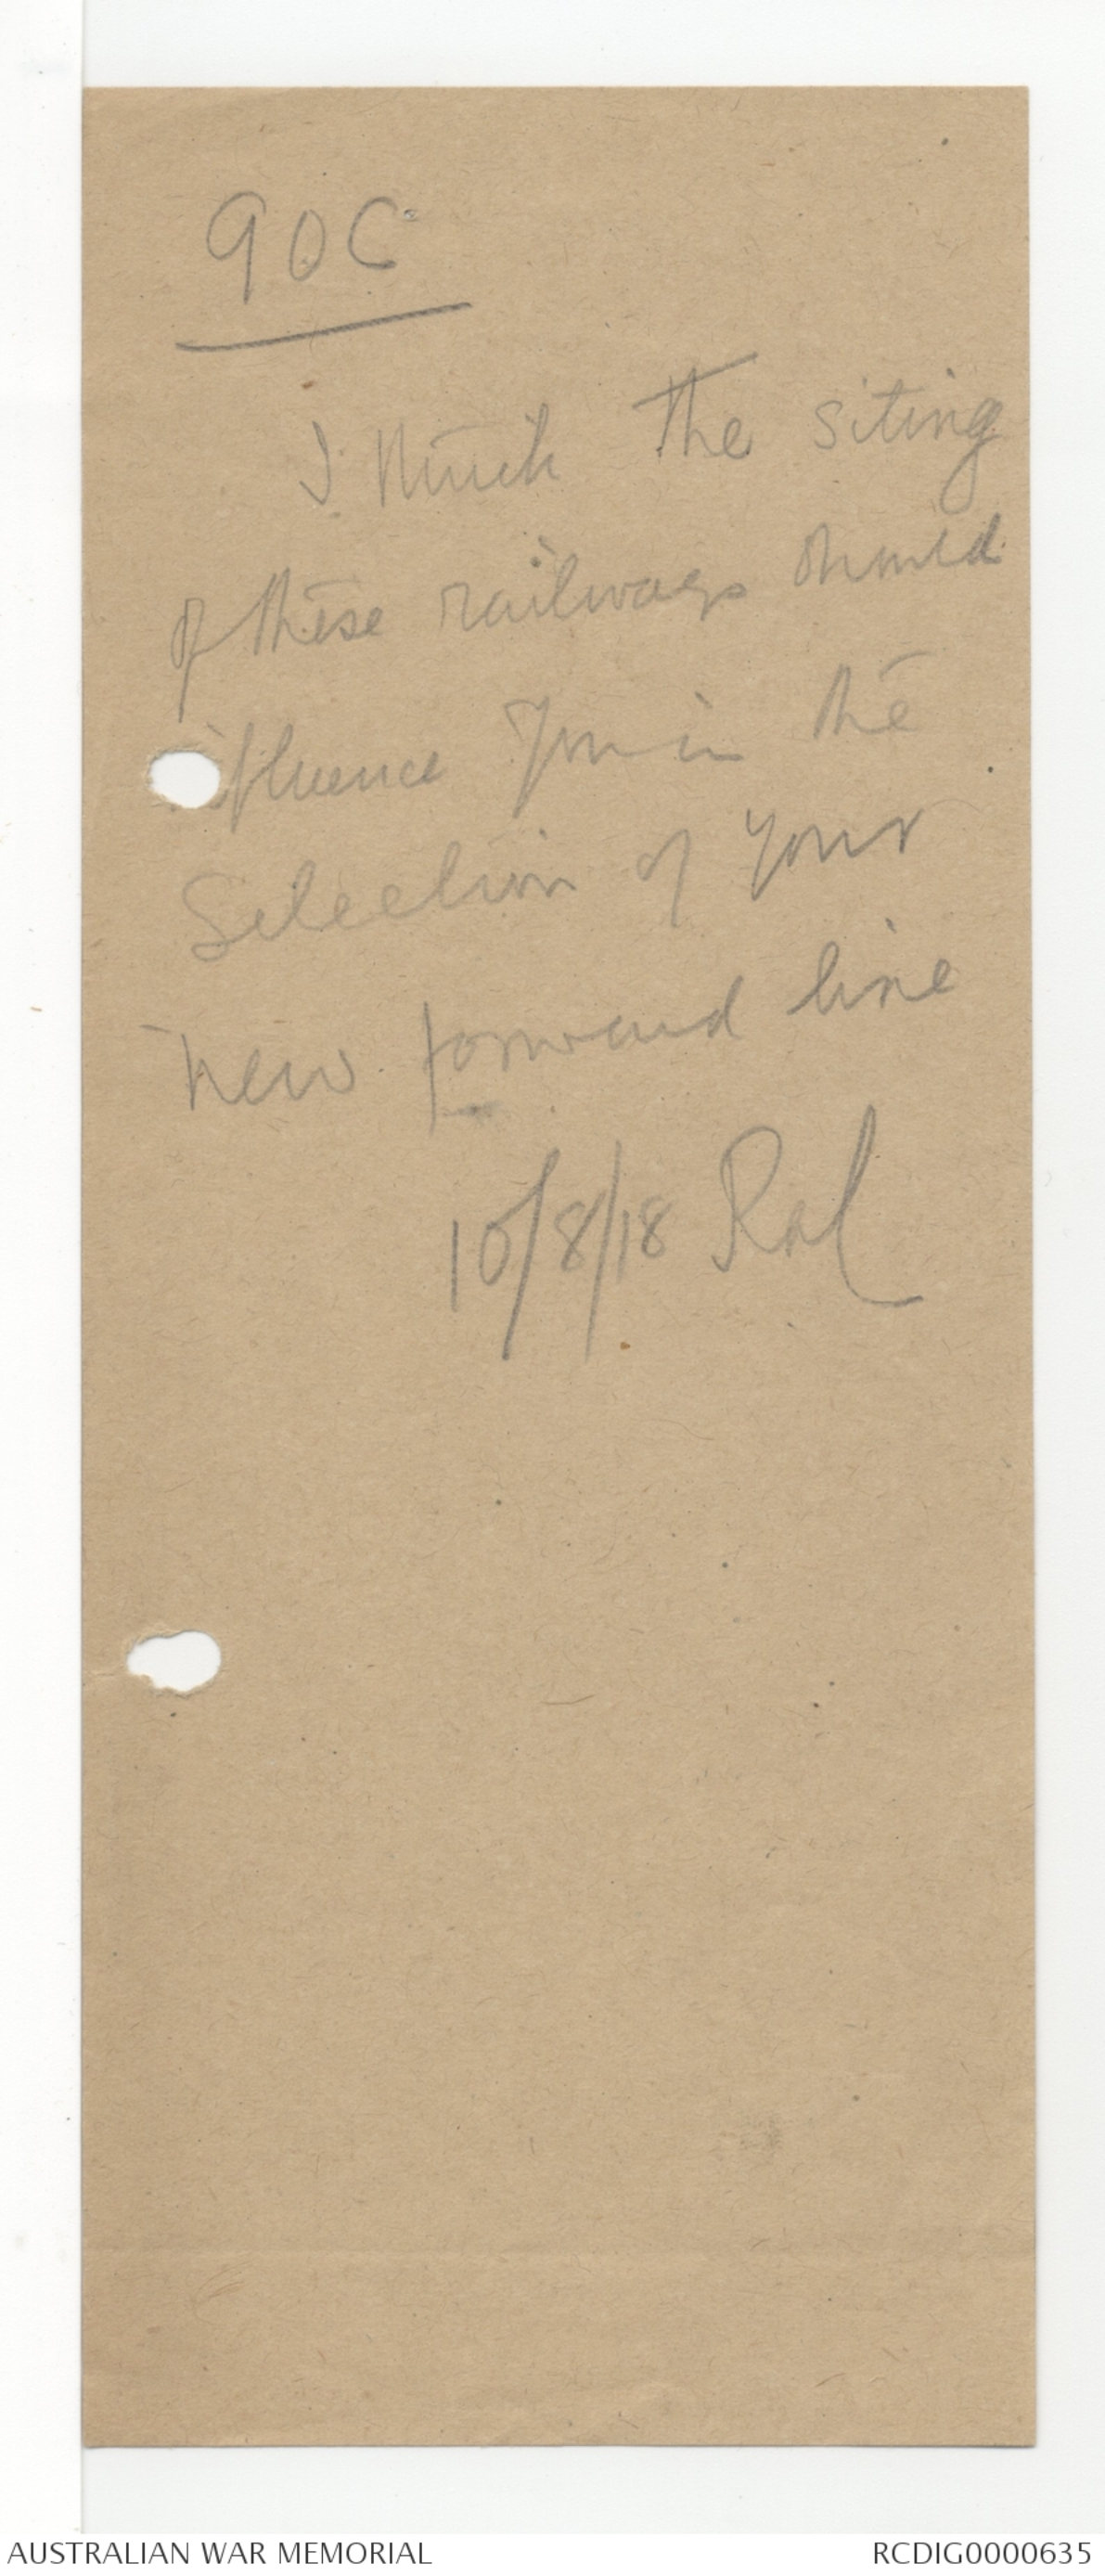 GOC
I think the siting
of these railways should
influence you in the
Selection of your
new forward line
10/8/18
AUSTRALIAN WAR MEMORIAL
RCDIG0000635